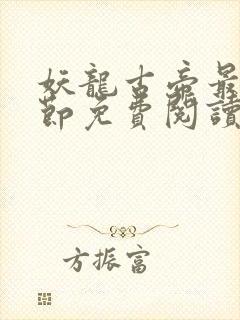 妖龍古帝最
節免費閱讀
方振富